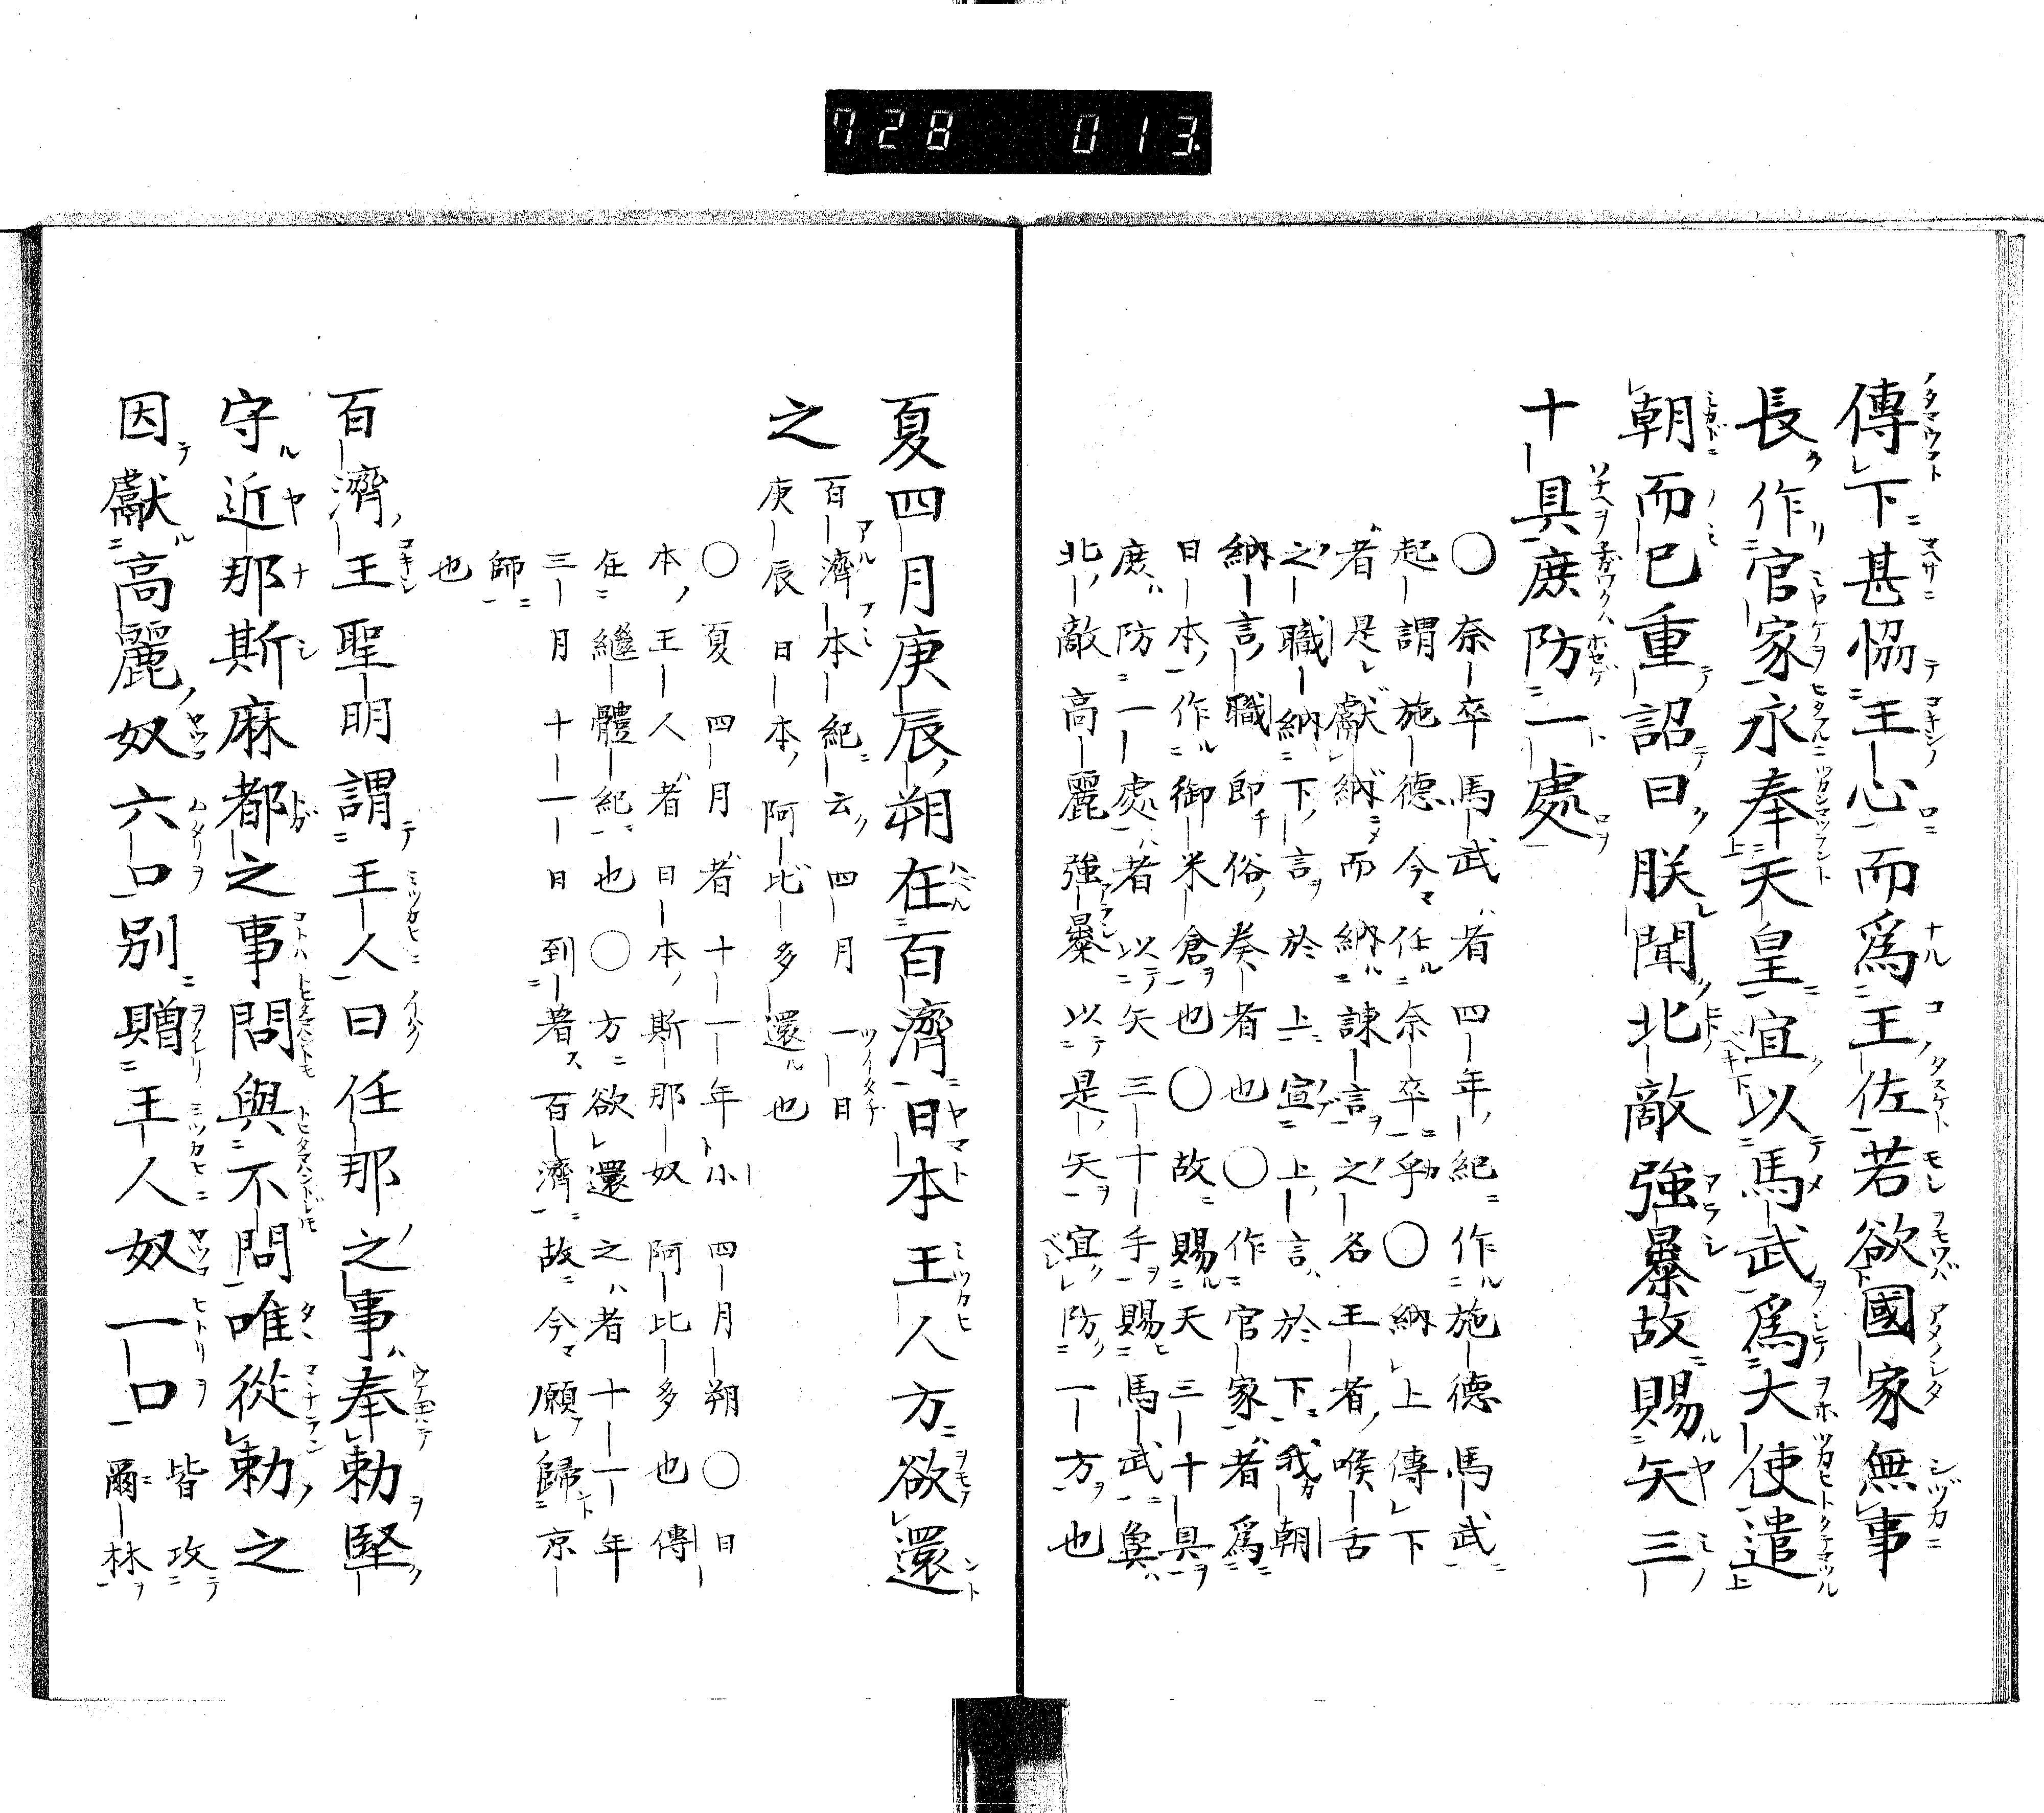 728 013
傳下甚恊王心而爲王佐若欲國家無事
長作官家永奉天皇宜以馬武爲大使遣
朝而已重詔曰朕聞北敵強暴故賜矢三
十具庶防一處
○奈卒馬武者四年紀作施德馬武
起謂施德今任奈卒乎○納上傳下
者是獻納而納諫言之名王者喉舌
之職納下言於上宣上言於下我朝
納言職即俗奏者也○作官家者爲
日本作御米倉也○故賜天三十具
庶防一處者以矢三十手賜馬武冀
北敵高麗強暴以是矢宜防一方也
夏四月庚辰朔在百濟日本王人方欲還
之
百濟本紀云四月一日
庚辰日本阿比多還也
○夏四月者十一年小四月朔○日
本王人者日本斯那奴阿比多也傳
在繼體紀也○方欲還之者十一年
三月十一日到著百濟故今願歸京
師
也
百濟王聖明謂王人曰任那之事奉勅堅
守近那斯麻都之事問與不問唯從勅之
因獻高麗奴六口別贈王人奴一口
皆攻
爾林